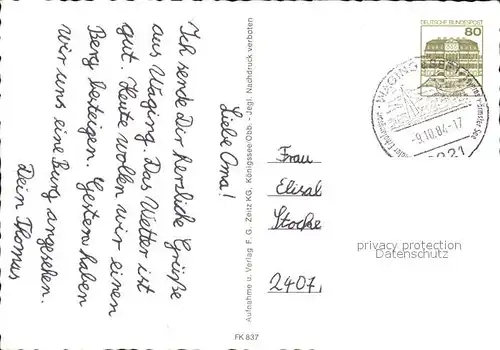 Liebe Oma!
Ich sende Dir herzliche Grüße
aus Waging. Das Wetter ist
gut. Heute wollen wir einen
Berg besteigen. Gestern haben
wir uns eine Burg angesehen.
Dein Thomas
Aufnahme u. Verlag F. G. Zeitz KG, Königssee/Obb. - Jegl. Nachdruck verboten
FK 837
DEUTSCHE BUNDESPOST
80
WAGING
-9.10.84-17
Frau
Elisab
Stocke
2407,
privacy protection
Datenschutz